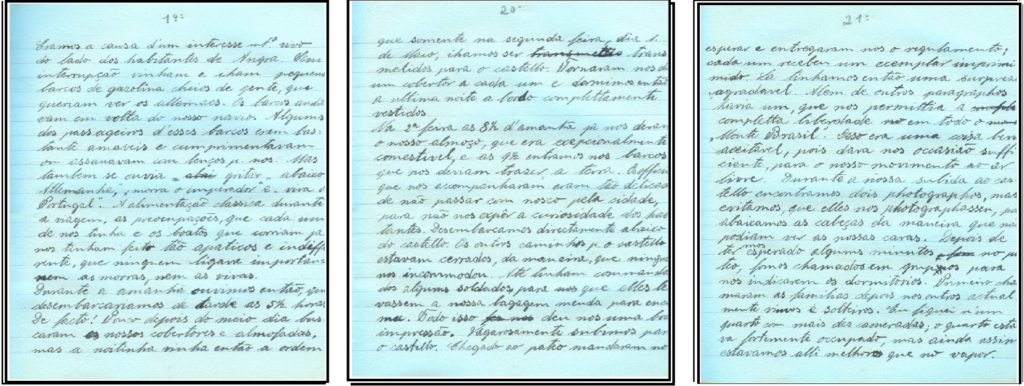 19:
Eramos a causa d'um interesse mto vivo
do lado dos habitantes de Angra. Sem
interrupção vinham e eham pequenos
barcos de gazolina cheios de gente, que
queriam ver os allemães. Os barcos anda
vam em volta do nosso navio. Alguns
dos passageiros d'esses barcos eram bas
tante amaveis e cumprimentavam
ou assanavam com lenços p. nos. Mas
tambem se ouvia gritar „abaixo
Allemanha", „morra o imperador" e „viva o
Portugal". A alimentação classica durante
a viagem, as preocupações, que cada um
de nos tinha e os boatos que corriam ja
nos tinham feito tão apaticos e indiffe
rente, que ninguem ligava importan
nem as morras, nem as vivas.
Durante a amanha ouvimos então, que
desembarcariamos de tarde as 5½ horas
De facto! Pouco depois do meio dia bus
caram os nossos cobertores e almofadas,
mas a noitinha vinha então a ordem
20:
que somente na segunda feira, dia 1.
de Maio, ihamos ser trans
metidos para o castello. Tornaram nos dar
um cobertor a cada um e dormimos então
a ultima noite a bordo complettamente
vestidos.
Na 2ª feira as 8½ d'amanha já nos deram
o nosso almoço, que era excepcionalmente
comestivel, e as 9½ entramos nos barcos
que nos deviam trazer a terra. Os officiaes
que nos acompanharam eram tão delicados
de não passar com nosco pela cidade,
para não nos expôr a curiosidade dos habi
tantes. Desembarcamos directamente abaixo
do castello. Os outros caminhos p. o castello
estavam cerrados, da maneira, que ninguem
nos incommodou. Até tinham commanda
dos alguns soldados, para nos que elles le
vassem a nossa bagagem meuda para cima
Tudo isso deu nos uma boa
impressão. Vagarosamente subimos para
o castello. Chegado ao pateo mandaram nos
21:
esperar e entregaram nos o regulamento;
cada um recebeu um exemplar imprimi
mido. La tinhamos então uma surpreza
agradavel. Alem de outros paragraphos
havia um, que nos permittia a
completta liberdade em todo o
„Monte Brasil". Isso era uma coisa bem
aceitavel, pois dava nos occasião suffi
ciente, para o nosso movimento ao ar
livre. Durante a nossa subida ao cas
tello encontramos dois photographos, mas
evitamos, que elles nos photographassem, pois
abaixamos as cabeças da maneira que não
podiam ver as nossas caras. Depois de
termos esperado alguns minutos no pa
teo, fomos chamados em grupos para
nos indicarem os dormitorios. Primeiro cha
maram as familias depois nos outros actual
mente e solteiros. Eu fiquei n'um
quarto com mais dez cameradas, o quarto esta
va fortemente occupado, mas ainda assim
estavamos alli melhor que no vapor.